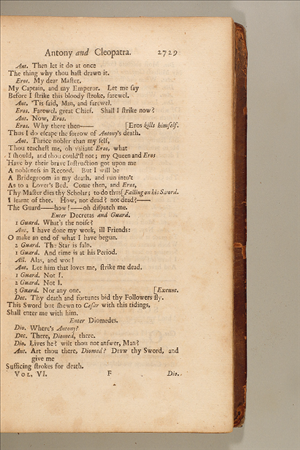 Antony and Cleopatra. 2729
Ant. Then let it do at once
The thing why thou hast drawn it.
Eros. My dear Master,
My Captain, and my Emperor. Let me say
Before I strike this bloody stroke, farewel.
Ant. 'Tis said, Man, and farewel.
Eros. Farewel, great Chief. Shall I strike now?
Ant. Now, Eros.
Eros. Why there then—— [Eros kills himself.
Thus I do escape the sorrow of Antony's death.
Ant. Thrice nobler than my self,
Thou teachest me, oh valiant Eros, what
I should, and thou could'st not; my Queen and Eros
Have by their brave Instruction got upon me
A nobleness in Record. But I will be
A Bridegroom in my death, and run into't
As to a Lover's Bed. Come then, and Eros,
Thy Master dies thy Scholar; to do thus [Falling on his Sword.
I learnt of thee. How, not dead? not dead?——
The Guard——how?——oh dispatch me.
Enter Decretas and Guard.
1 Guard. What's the noise?
Ant. I have done my work, ill Friends:
O make an end of what I have begun.
2 Guard. The Star is faln.
1 Guard. And time is at his Period.
All. Alas, and wo!
Ant. Let him that loves me, strike me dead.
1 Guard. Not I.
2 Guard. Nor I.
3 Guard. Nor any one. [Exeunt.
Dec. Thy death and fortunes bid thy Followers fly.
This Sword but shewn to Cæsar with this tidings,
Shall enter me with him.
Enter Diomedes.
Dio. Where's Antony?
Dec. There, Diomed, there.
Dio. Lives he? wilt thou not answer, Man?
Ant. Art thou there, Diomed? Draw thy Sword, and
give me
Sufficing strokes for death.
Vol. VI. F Dio.